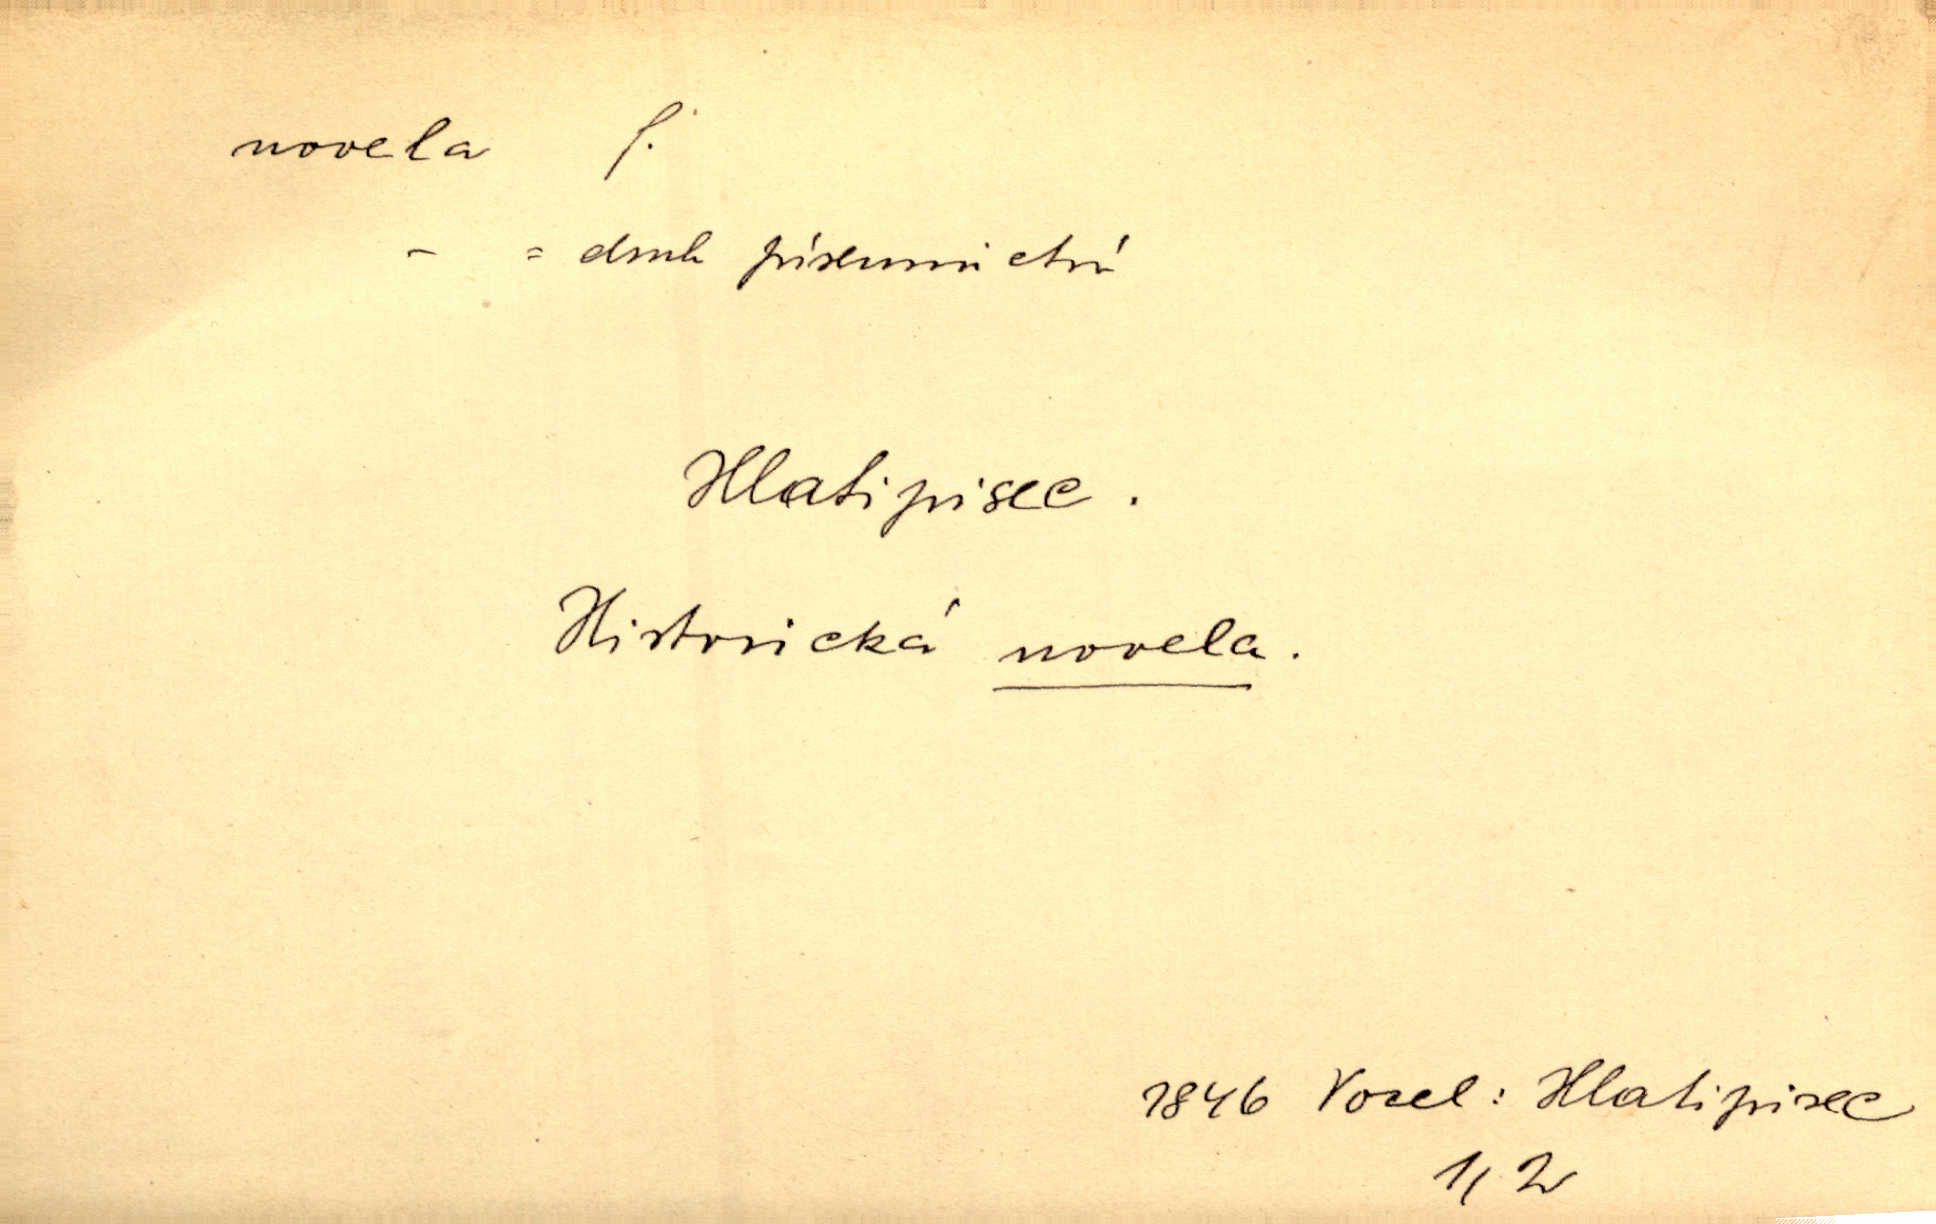 novela f.
- = druh písemnictví
Hlatipisec.
Historická novela.
1846 Vocel: Hlatipisec
1, 2